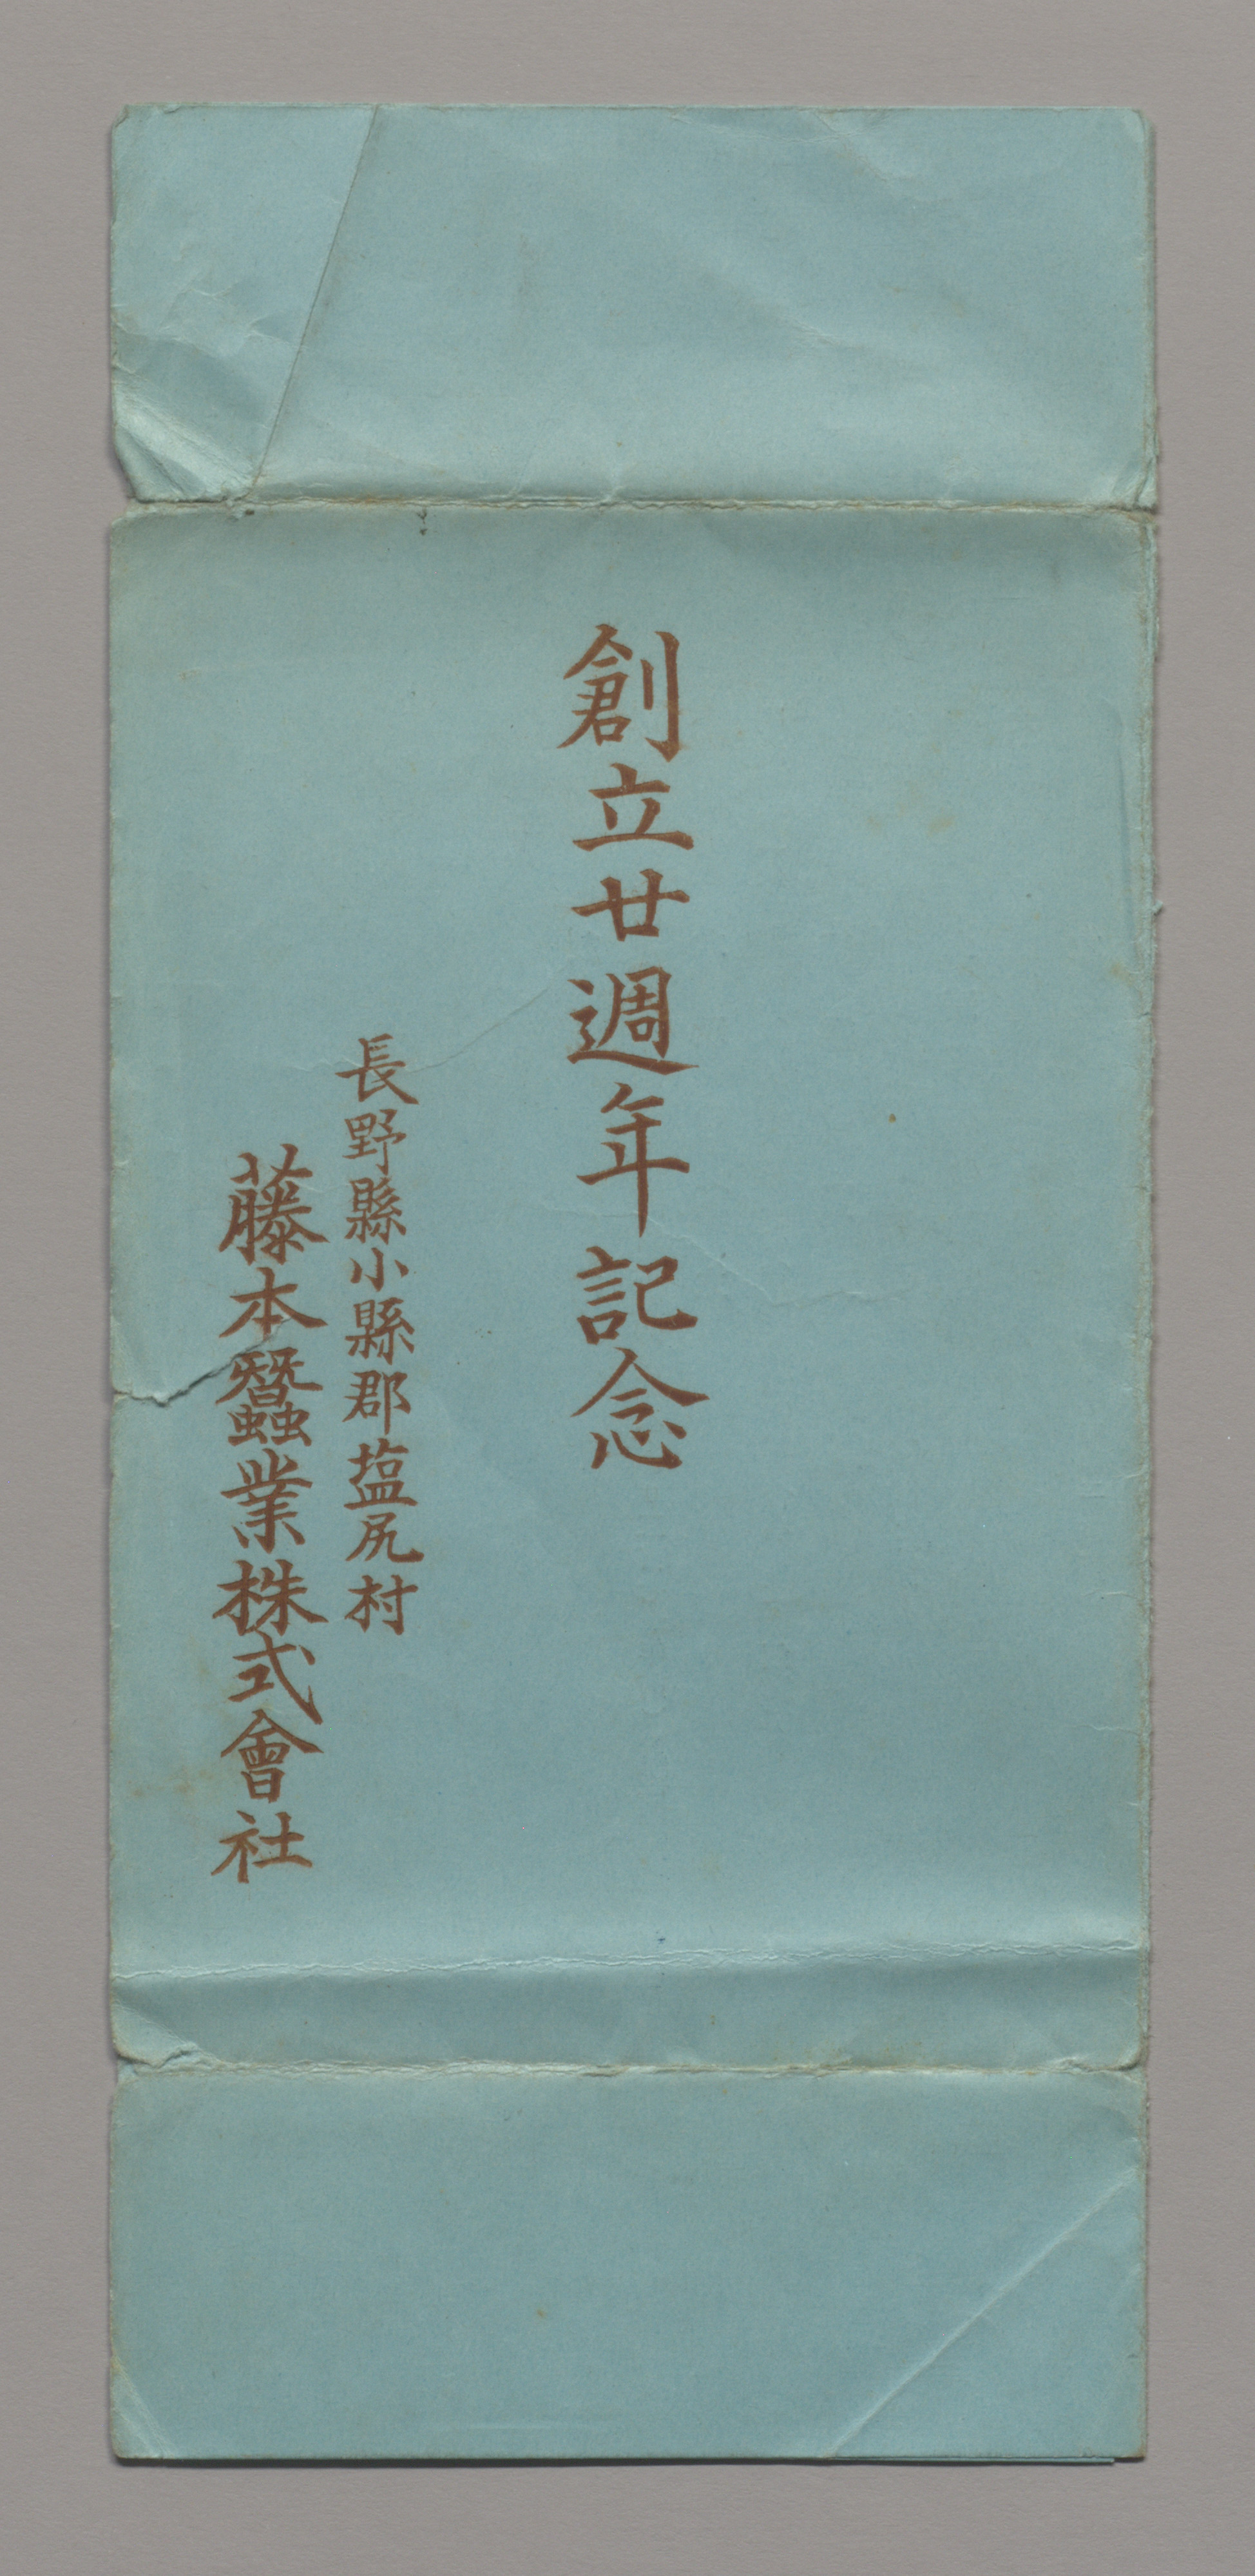 創立廿週年記念
長野縣小縣郡塩尻村
藤本蠶業株式會社